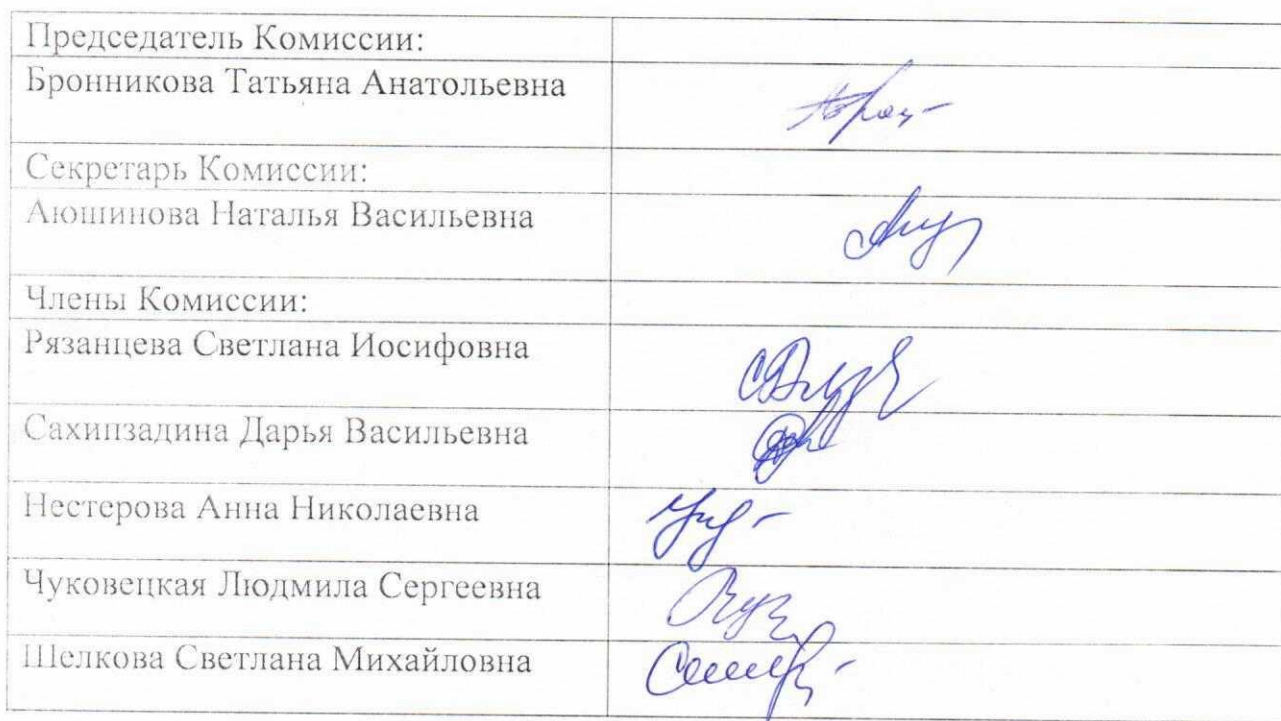 Председатель Комиссии:
Бронникова Татьяна Анатольевна
Секретарь Комиссии:
Аюшинова Наталья Васильевна
Члены Комиссии:
Рязанцева Светлана Иосифовна
Сахипзадина Дарья Васильевна
Нестерова Анна Николаевна
Чуковецкая Людмила Сергеевна
Шелкова Светлана Михайловна